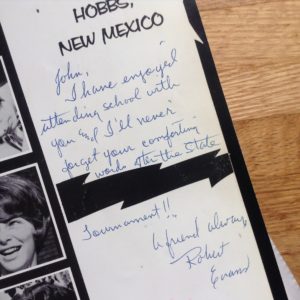 HOBBS,
NEW MEXICO
John,
I have enjoyed
attending school with
you and I'll never
forget your comforting
words after the State
Tournament!!
A friend always,
Robert
Evans